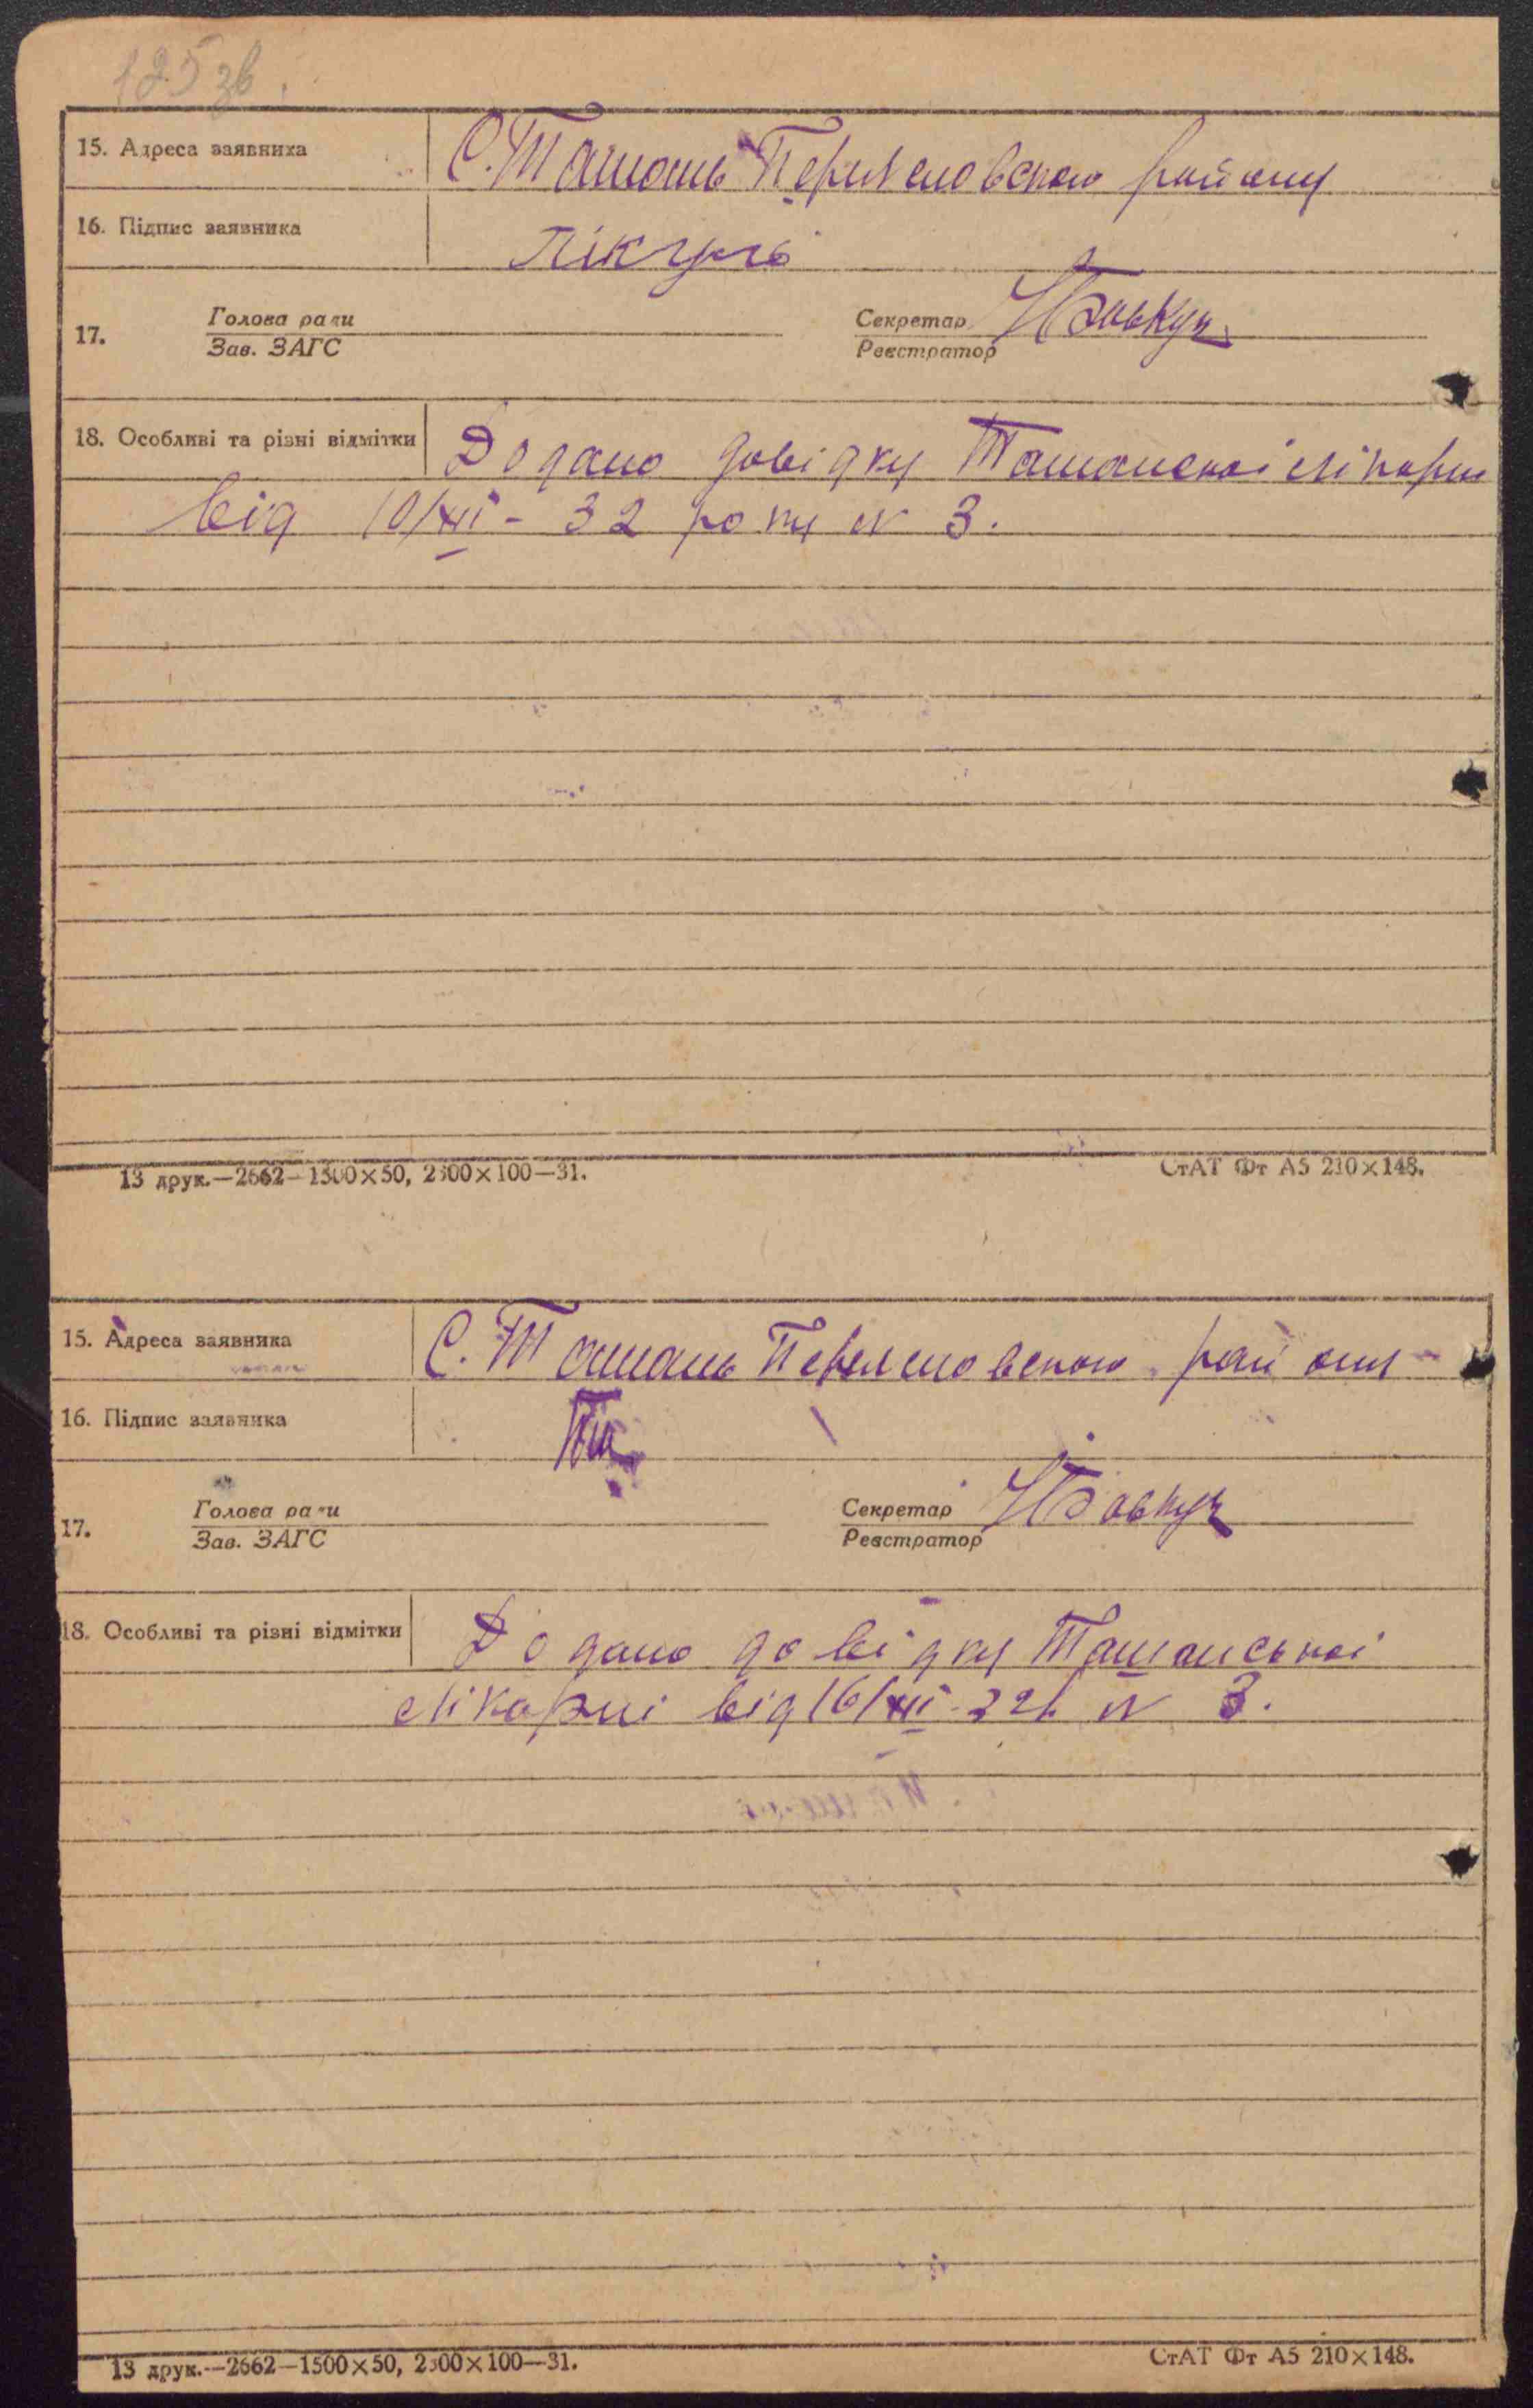 125 зв.
15. Адреса заявника С. Ташань Переяславского району
16. Підпис заявника Пікуль
17. Голова ради Секретар НБовкун
Зав. ЗАГС Реєстратор
18. Особливі та різні відмітки Додано довідку Ташанскоі лікарні
від 10/XII - 32 року N 3.
13 друк.—2662—1500×50, 2500×100—31. СтАТ Фт А5 210×148.
15. Адреса заявника С. Ташань Переяславского району
16. Підпис заявника
17. Голова ради Секретар НБовкун
Зав. ЗАГС Реєстратор
18. Особливі та різні відмітки Додано довідку Ташанськоі
лікарні від 16/XII-32р. N 3.
13 друк.—2662—1500×50, 2500×100—31. СтАТ Фт А5 210×148.